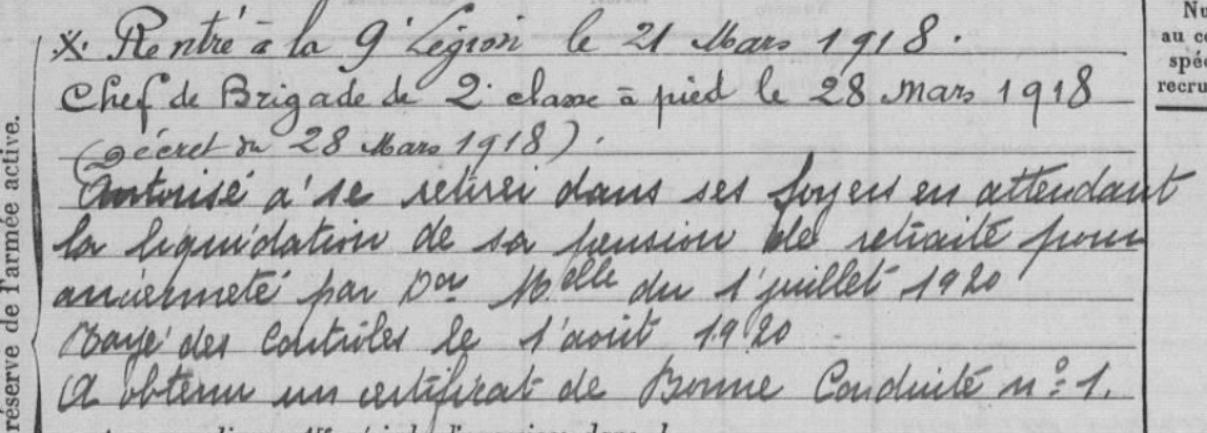 X. Rentré à la 9e Légion le 21 Mars 1918.
Chef de Brigade de 2e classe à pied le 28 mars 1918
(Décret du 28 Mars 1918).
Autorisé à se retirer dans ses foyers en attendant
la liquidation de sa pension de retraite pour
ancienneté par Don Melle du 1er juillet 1920
Rayé des Contrôles le 1er août 1920
A obtenu un certificat de Bonne Conduite n° 1.
réserve de l'armée active.
Nu
au co
spéc
recru